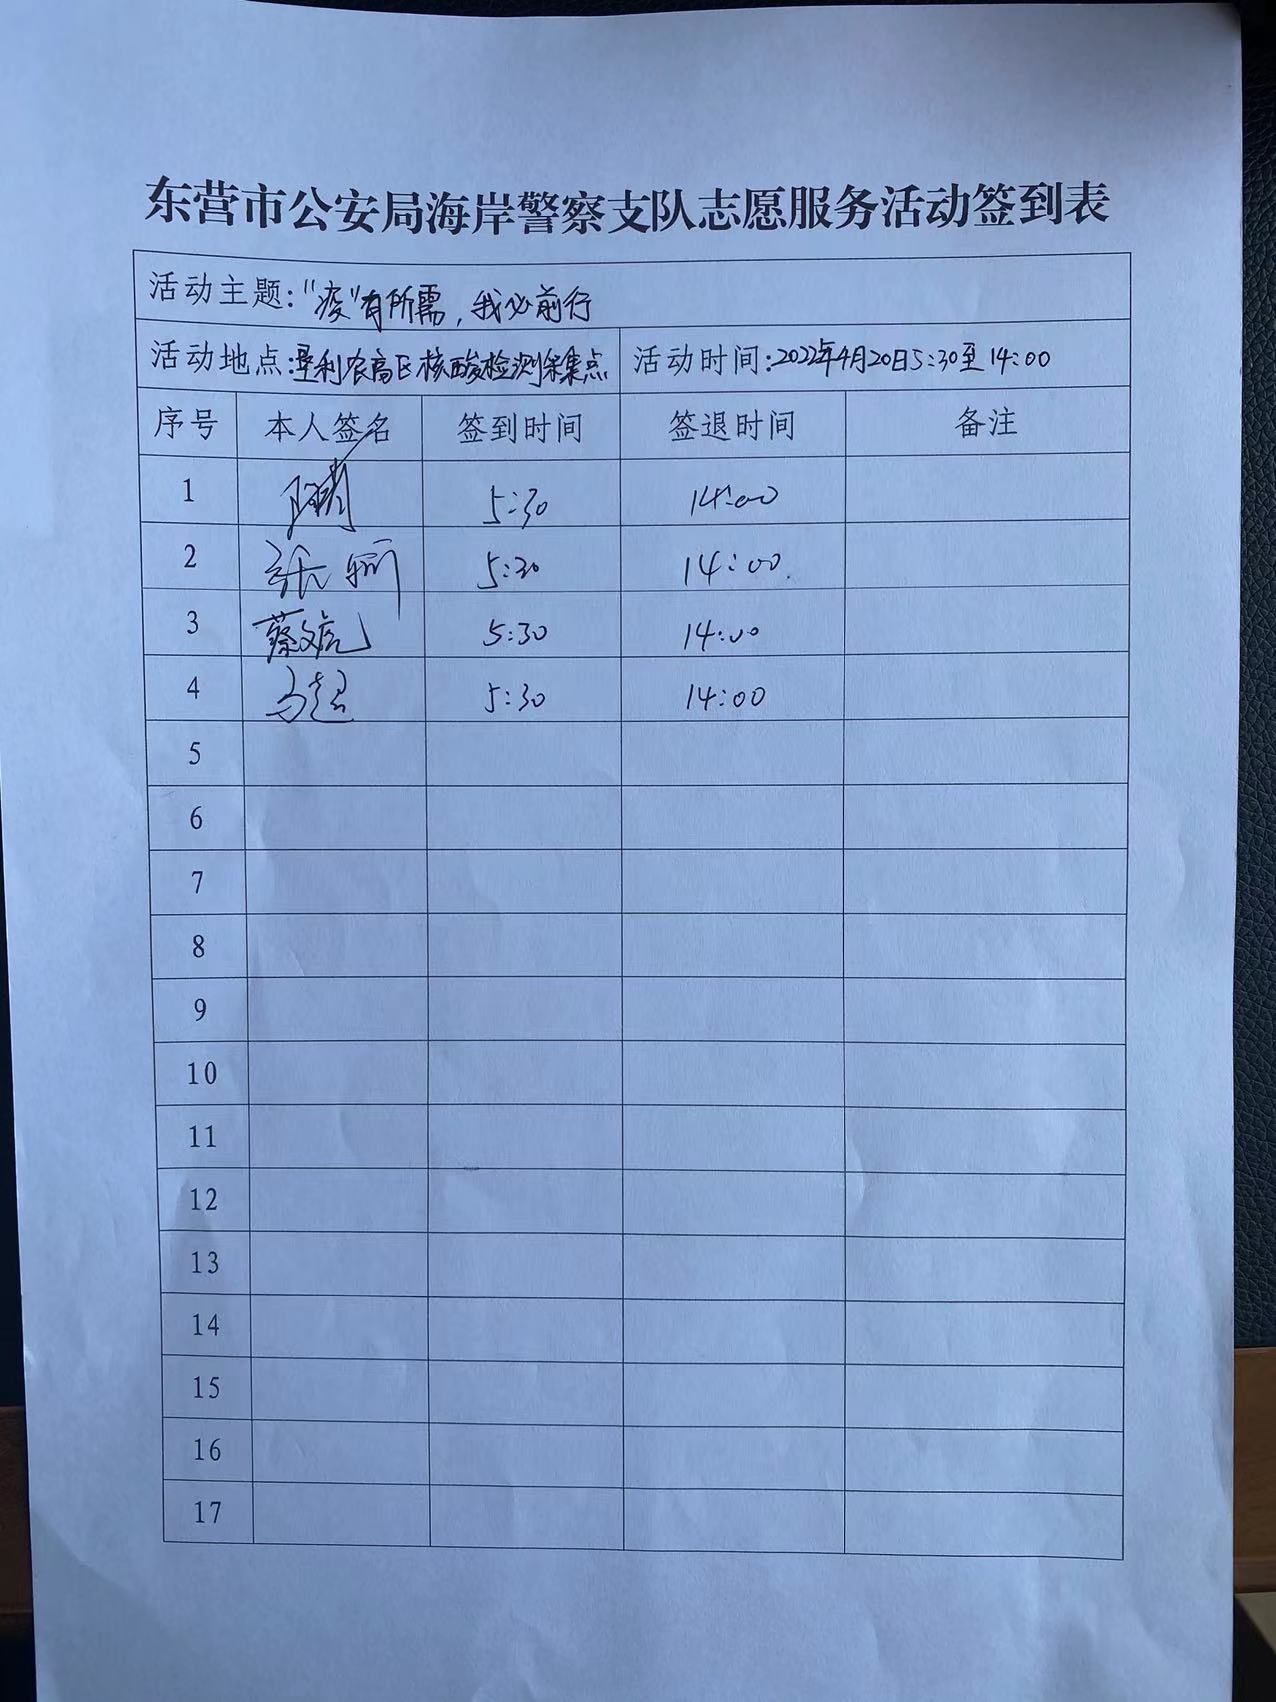 东营市公安局海岸警察支队志愿服务活动签到表
活动主题："疫"有所需，我必前行
活动地点：垦利农高区核酸检测采集点 活动时间：2022年4月20日5:30至14:00
序号 本人签名 签到时间 签退时间 备注
1 5:30 14:00
2 张 5:30 14:00
3 蔡文虎 5:30 14:00
4 马超 5:30 14:00
5
6
7
8
9
10
11
12
13
14
15
16
17